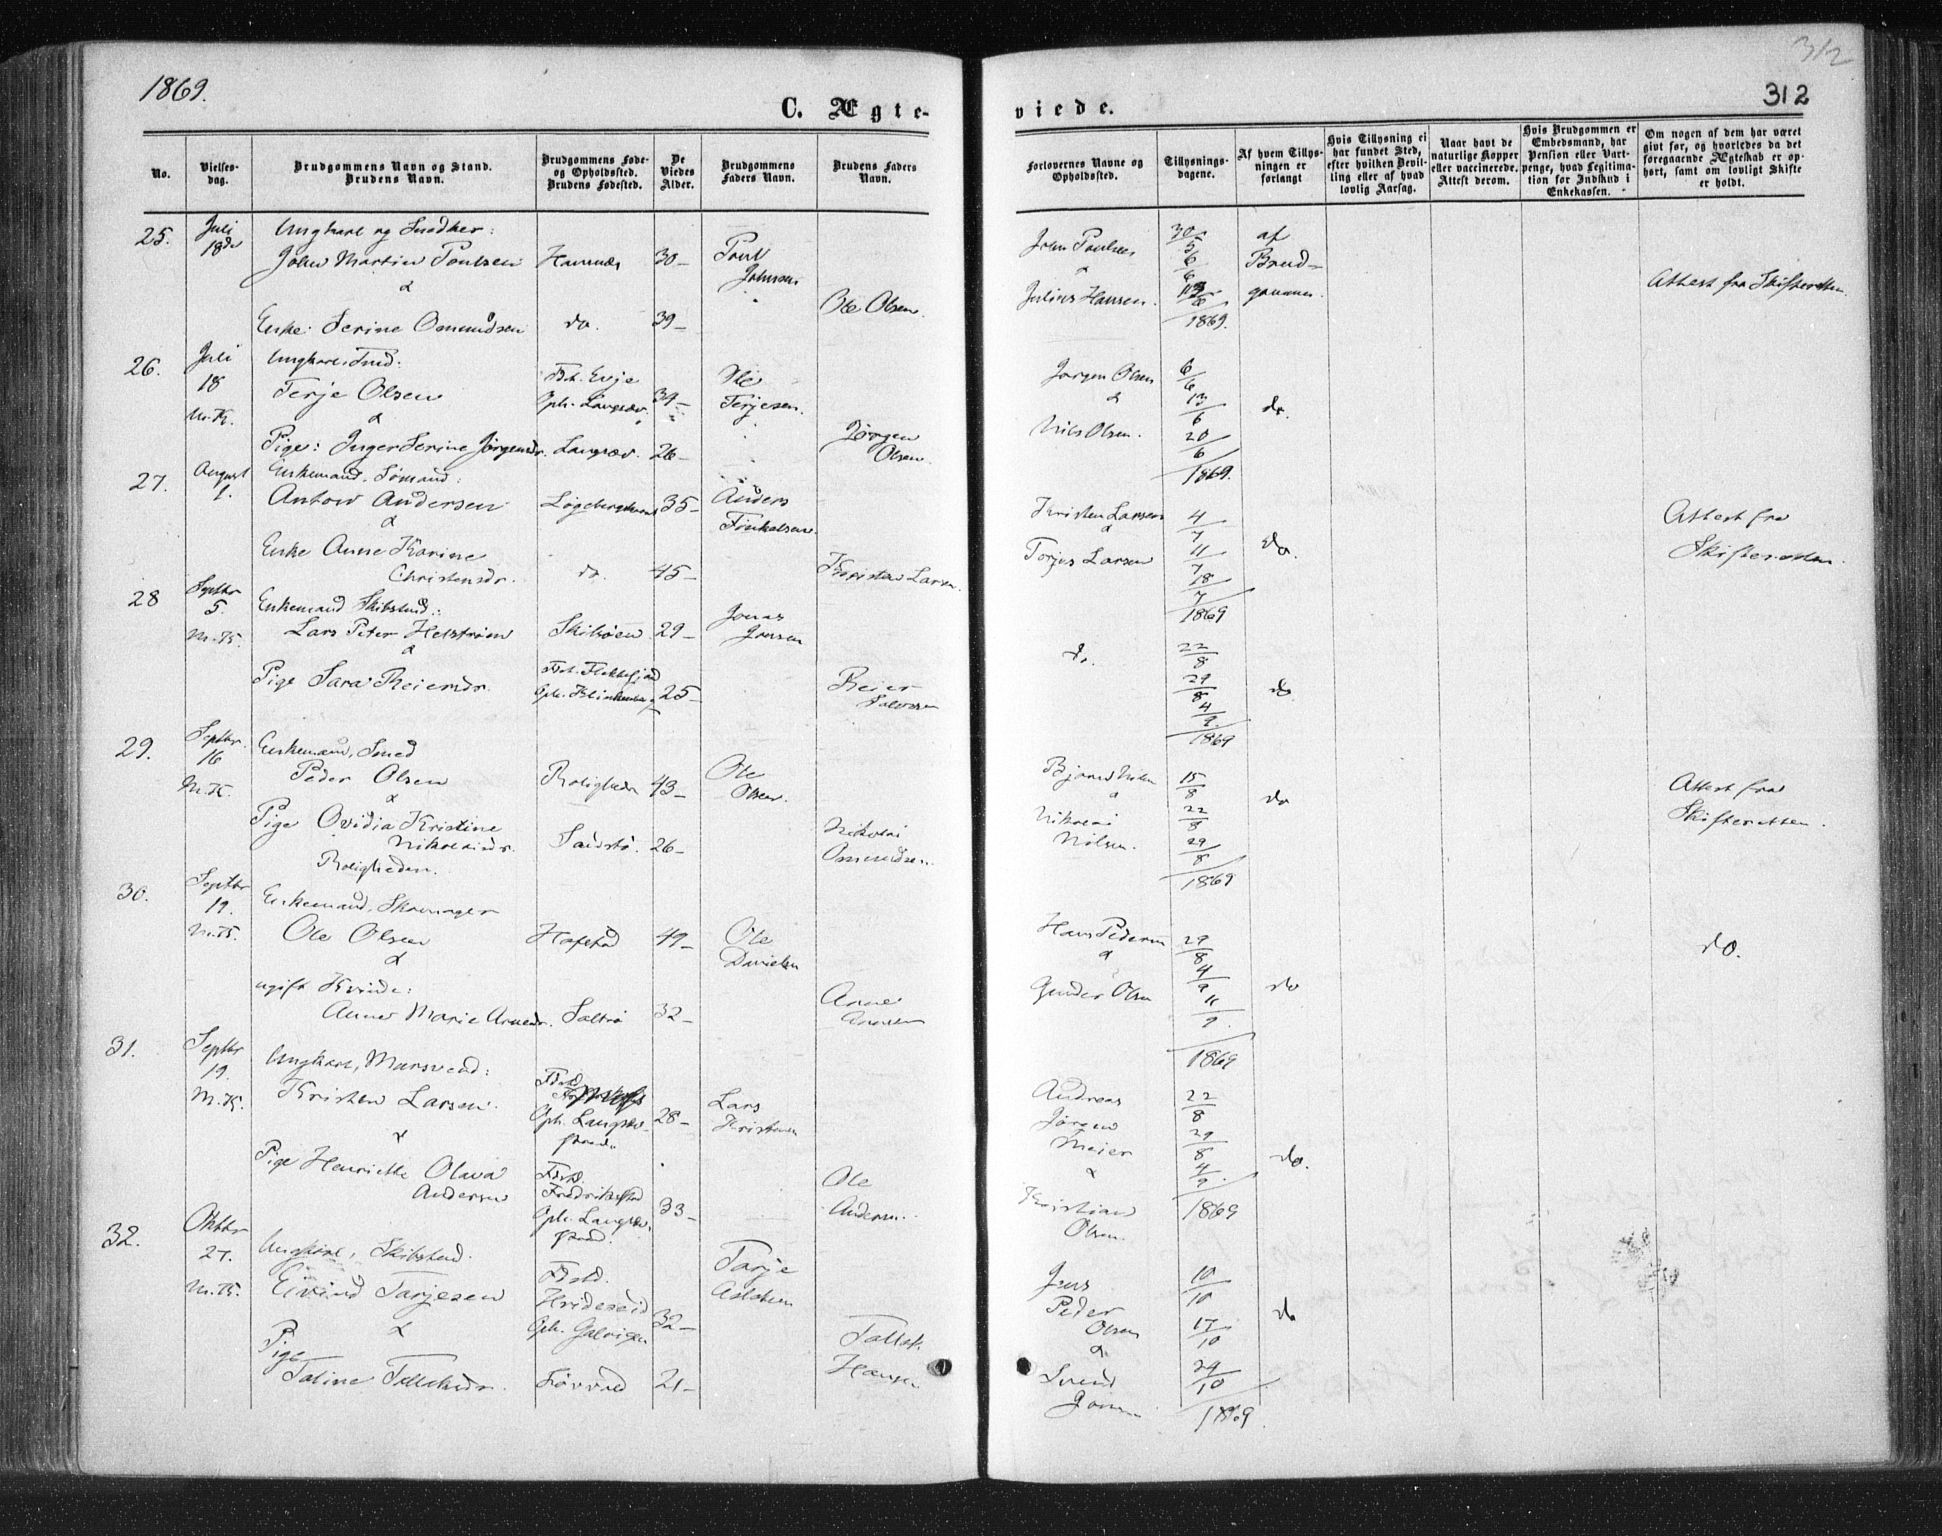 1869.
312
312
C. Ægte-
viede.
No.
Vielses-
dag.
Brudgommens Navn og Stand.
Brudens Navn.
Brudgommens Føde-
og Opholdssted.
Brudens Fødested.
De
Viedes
Alder.
Brudgommens
Faders Navn.
Brudens Faders
Navn.
Forlovernes Navne og
Opholdssted.
Tillysnings-
dagene.
Af hvem Tillys-
ningen er
forlangt
Hvis Tillysning ei
har fundet Sted,
efter hvilken Bevil-
ling eller af hvad
lovlig Aarsag.
Naar havt de
naturlige Kopper
eller vaccinerede.
Attest derom.
Hvis Brudgommen er
Embedsmand, har
Pension eller Vart-
penge, hvad Legitima-
tion for Indskud i
Enkekassen.
Om nogen af dem har været
givt før, og hvorledes da det
foregaaende Ægteskab er op-
hørt, samt om lovligt Skifte
er holdt.
25.
Juli
18de
Ungkarl og Snedker:
John Martin Poulsen
&
Enke: Serine Osmundsen
do.
30
39
Poul
Johnsen
Ole Olsen.
John Poulsen
&
Julius Hansen.
30/5
6/6
1869.
af
Brud-
gommen.
Attest fra Skifteretten.
26.
Juli
18
M. K.
Ungkarl, Smed.
Terje Olsen
&
Pige: Inger Serine Jørgensdr.
Fst. Evje
Oph. Langsæv.
Langsæv.
34
26
Ole
Terjesen.
Jørgen
Olsen.
Jørgen Olsen
&
Nils Olsen.
6/6
13/6
20/6
1869.
do.
27.
August
1.
Enkemand, Sømand:
Anton Andersen
&
Enke Anne Karine
Christensdr.
do.
35
45
Anders
Kristen Larsen.
Kristen Larsen
&
Torjus Larsen
4/7
11/7
18/7
1869
do.
Attest fra
Skifteretten.
28
Septbr
5.
M. K.
Enkemand Skibstmd.:
Lars Peter Helström
&
Pige Sara Reiersdr.
29
25
Jonas
Jonsen
Reier
do.
22/8
29/8
4/9
1869
do
29.
Septbr.
16
M. K.
Enkemand, Smed
Peder Olsen
&
Pige Ovidia Kristine
Nikolaisdr.
Roligheden.
Roligheden
Sandstø.
43
26
Ole
Olsen.
Nikolai
Osmundsen.
&
Nikolai
Nilsen.
15/8
22/8
29/8
1869
do
Attest fra
Skifteretten.
30.
Septbr
19.
M. K.
Enkemand, Skomager
Ole Olsen
&
ugift Kvinde:
Anne Marie Arnesdr.
Saltrø
49
32
Ole
Danielsen
Arne
Arnesen
Hans Pedersen
&
Gunder Olsen
29/8
4/9
11/9
1869
do
do.
31.
Septbr
19.
M. K.
Ungkarl, Mursvend:
Kristen Larsen.
&
Pige Henriette Olava
Andersen
Fst.
Oph. Langsæv-
strand.
Fst.
Fredrikstad
Oph. Langsæv.
strand.
28
33
Lars
Kristensen
Ole
Andersen.
Andreas
Jørgen
Meier
&
Kristian
Olsen.
22/8
29/8
4/9
1869
do.
32.
Oktbr
27.
M. K.
Ungkarl, Skibstmd.
Eivind Tarjesen
&
Pige
Taline Tellefsdr.
Fst.
Hvideseid
Oph. Galvigen
32
21
Tarje
Hansen
Jens
Peder
Olsen
&
Svend
10/10
17/10
24/10
1869.
do